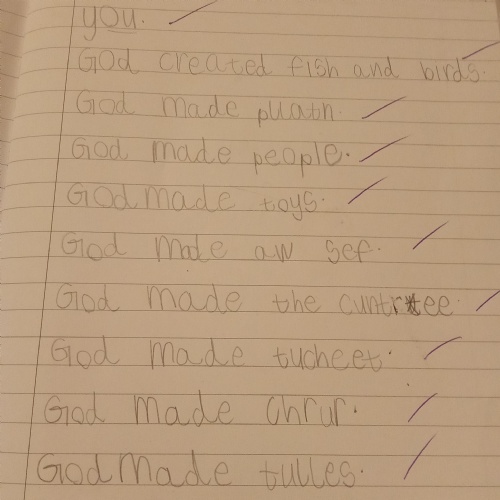 you.
God created fish and birds.
God made pluatn.
God made people.
God made toys.
God made aw sef.
God made the cuntrtee.
God made tucheet.
God made chrur.
God made tulles.